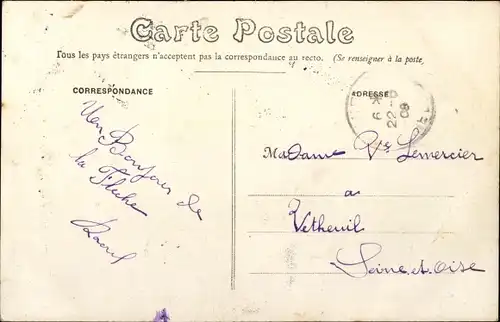 Carte Postale
Tous les pays étrangers n'acceptent pas la correspondance au recto. (Se renseigner à la poste)
CORRESPONDANCE
ADRESSE
6
22
08
Un Bonjour de
la Flèche
Raoul
Madame Vve Lemercier
a
Vetheuil
Seine-et-Oise